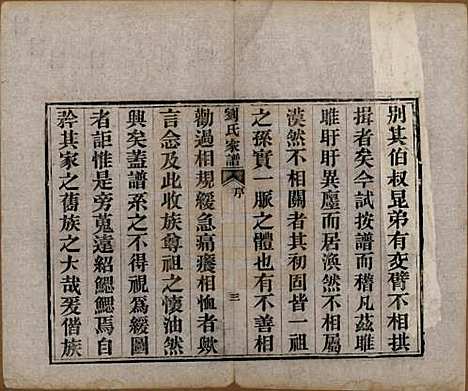 別其伯叔昆弟有交臂不相拱
揖者矣今試按譜而稽凡茲雎
雎盱盱異廛而居渙然不相屬
漠然不相關者其初固皆一祖
之孫實一脈之體也有不善相
劉氏家譜 序 三
勸過相規緩急痛癢相恤者歟
言念及此收族尊祖之懷油然
興矣蓋譜系之不得視爲緩圖
者詎惟是旁蒐遠紹鰓鰓焉自
矜其家之舊族之大哉爰偕族